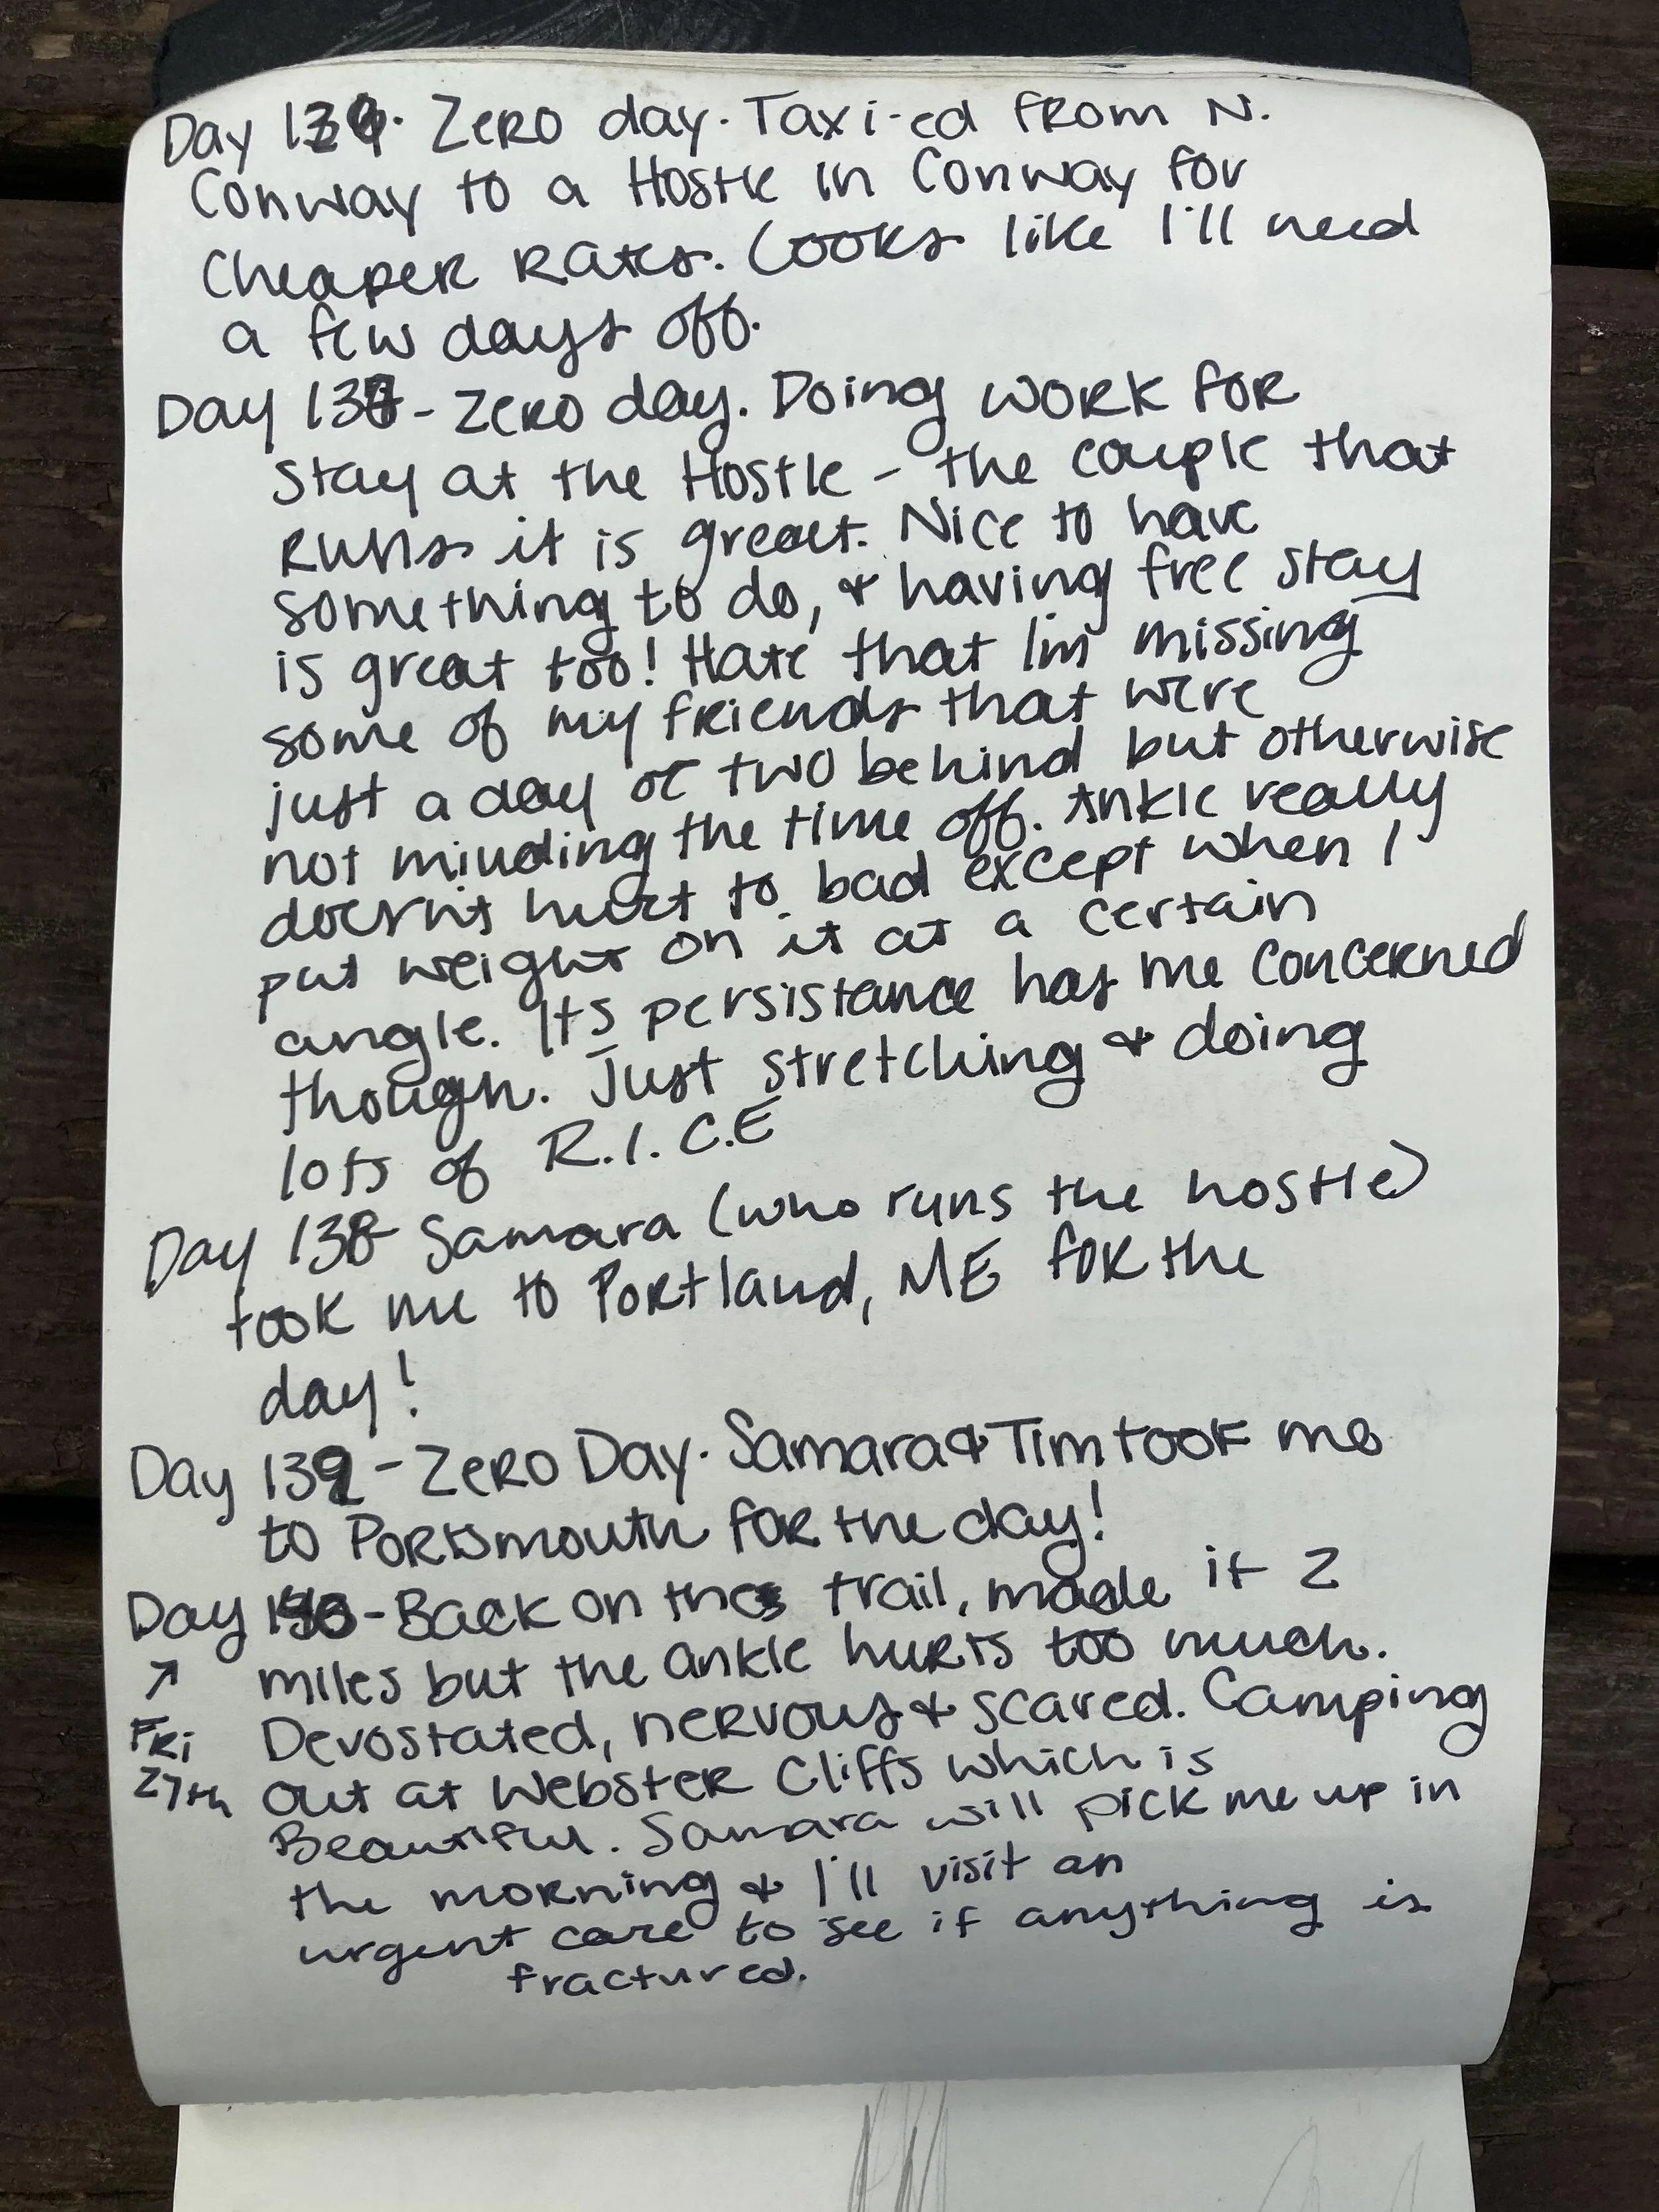 Day 136. Zero day. Taxi-ed from N.
Conway to a Hostle in Conway for
Cheaper Rates. Looks like I'll need
a few days off.
Day 137 - Zero day. Doing work for
stay at the Hostle - the couple that
runs it is great. Nice to have
something to do, & having free stay
is great too! Hate that I'm missing
some of my friends that were
just a day or two behind but otherwise
not minding the time off. Ankle really
doesn't hurt to bad except when I
put weight on it at a certain
angle. Its persistance has me concerned
though. Just stretching & doing
lots of R.I.C.E
Day 138 Samara (who runs the hostle)
took me to Portland, ME for the
day!
Day 139 - Zero Day. Samara & Tim took me
to Portsmouth for the day!
Day 140 - Back on the trail, made it 2
↗ miles but the ankle hurts too much.
Fri Devostated, nervous & scared. Camping
27th out at Webster Cliffs which is
Beautiful. Samara will pick me up in
the morning & I'll visit an
urgent care to see if anything is
fractured.